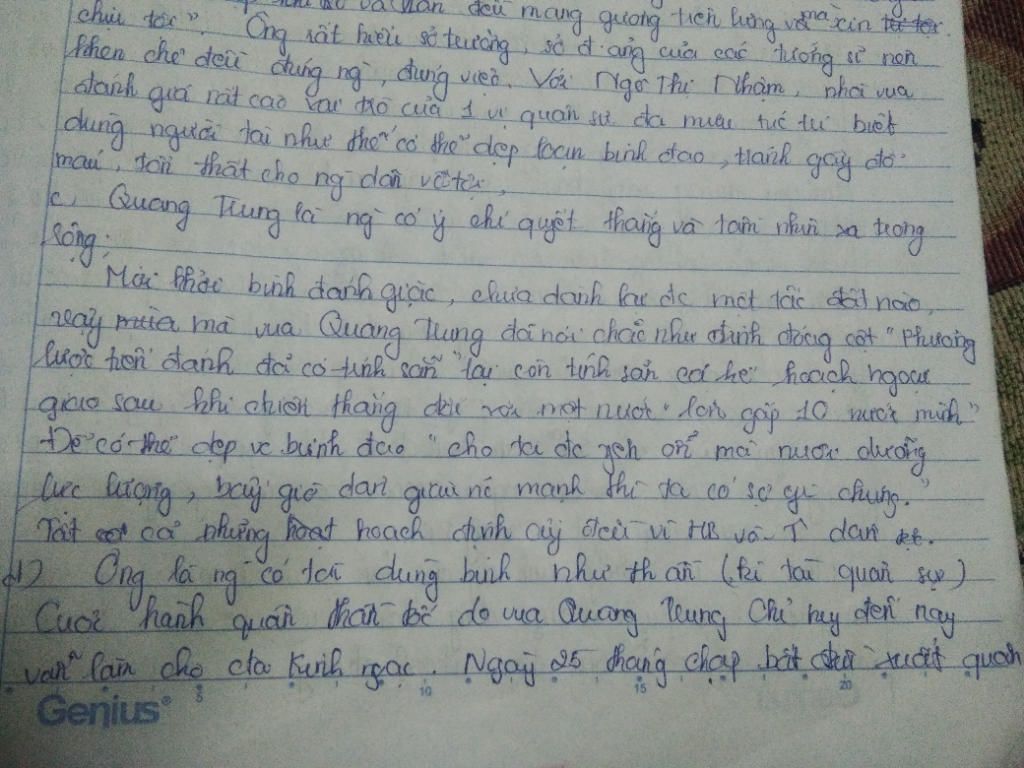 chịu tội". Ông rất hiểu sở trường, sở đoảng của các tướng sĩ nên
khen chê đều đúng ng`, đúng việc. Với Ngô Thì Nhậm, nhà vua
đánh giá rất cao vai trò của 1 vị quân sư đa mưu túc trí biết
dùng người tài như thế có thể dẹp loạn binh đao, tránh gây đổ
máu, tổn thất cho ng` dân vô tội,
c, Quang Trung là ng` có ý chí quyết thắng và tầm nhìn xa trong
rộng:
Mới khởi binh đánh giặc, chưa dành lại đc một tấc đất nào,
vậy mà vua Quang Trung đã nói chắc như đinh đóng cột "Phương
lược tiến đánh đã có tính sẵn" lại còn tính sẵn cả kế hoạch ngoại
giao sau khi chiến thắng đối với một nước "lớn gấp 10 nước mình"
Để có thể dẹp vc binh đao "cho ta đc yên ổn mà nuôi dưỡng
lực lượng, bấy giờ dân giàu nc mạnh thì ta có sợ gì chúng."
Tất cả những hoạch định ấy đều vì HB và T dân
d) Ông là ng` có tài dụng binh như thần (kì tài quân sự)
Cuộc hành quân thần tốc do vua Quang Trung Chỉ huy đến nay
vẫn làm cho cta kinh ngạc. Ngày 25 tháng chạp bắt đầu xuất quân
5 10 15 20
Genius